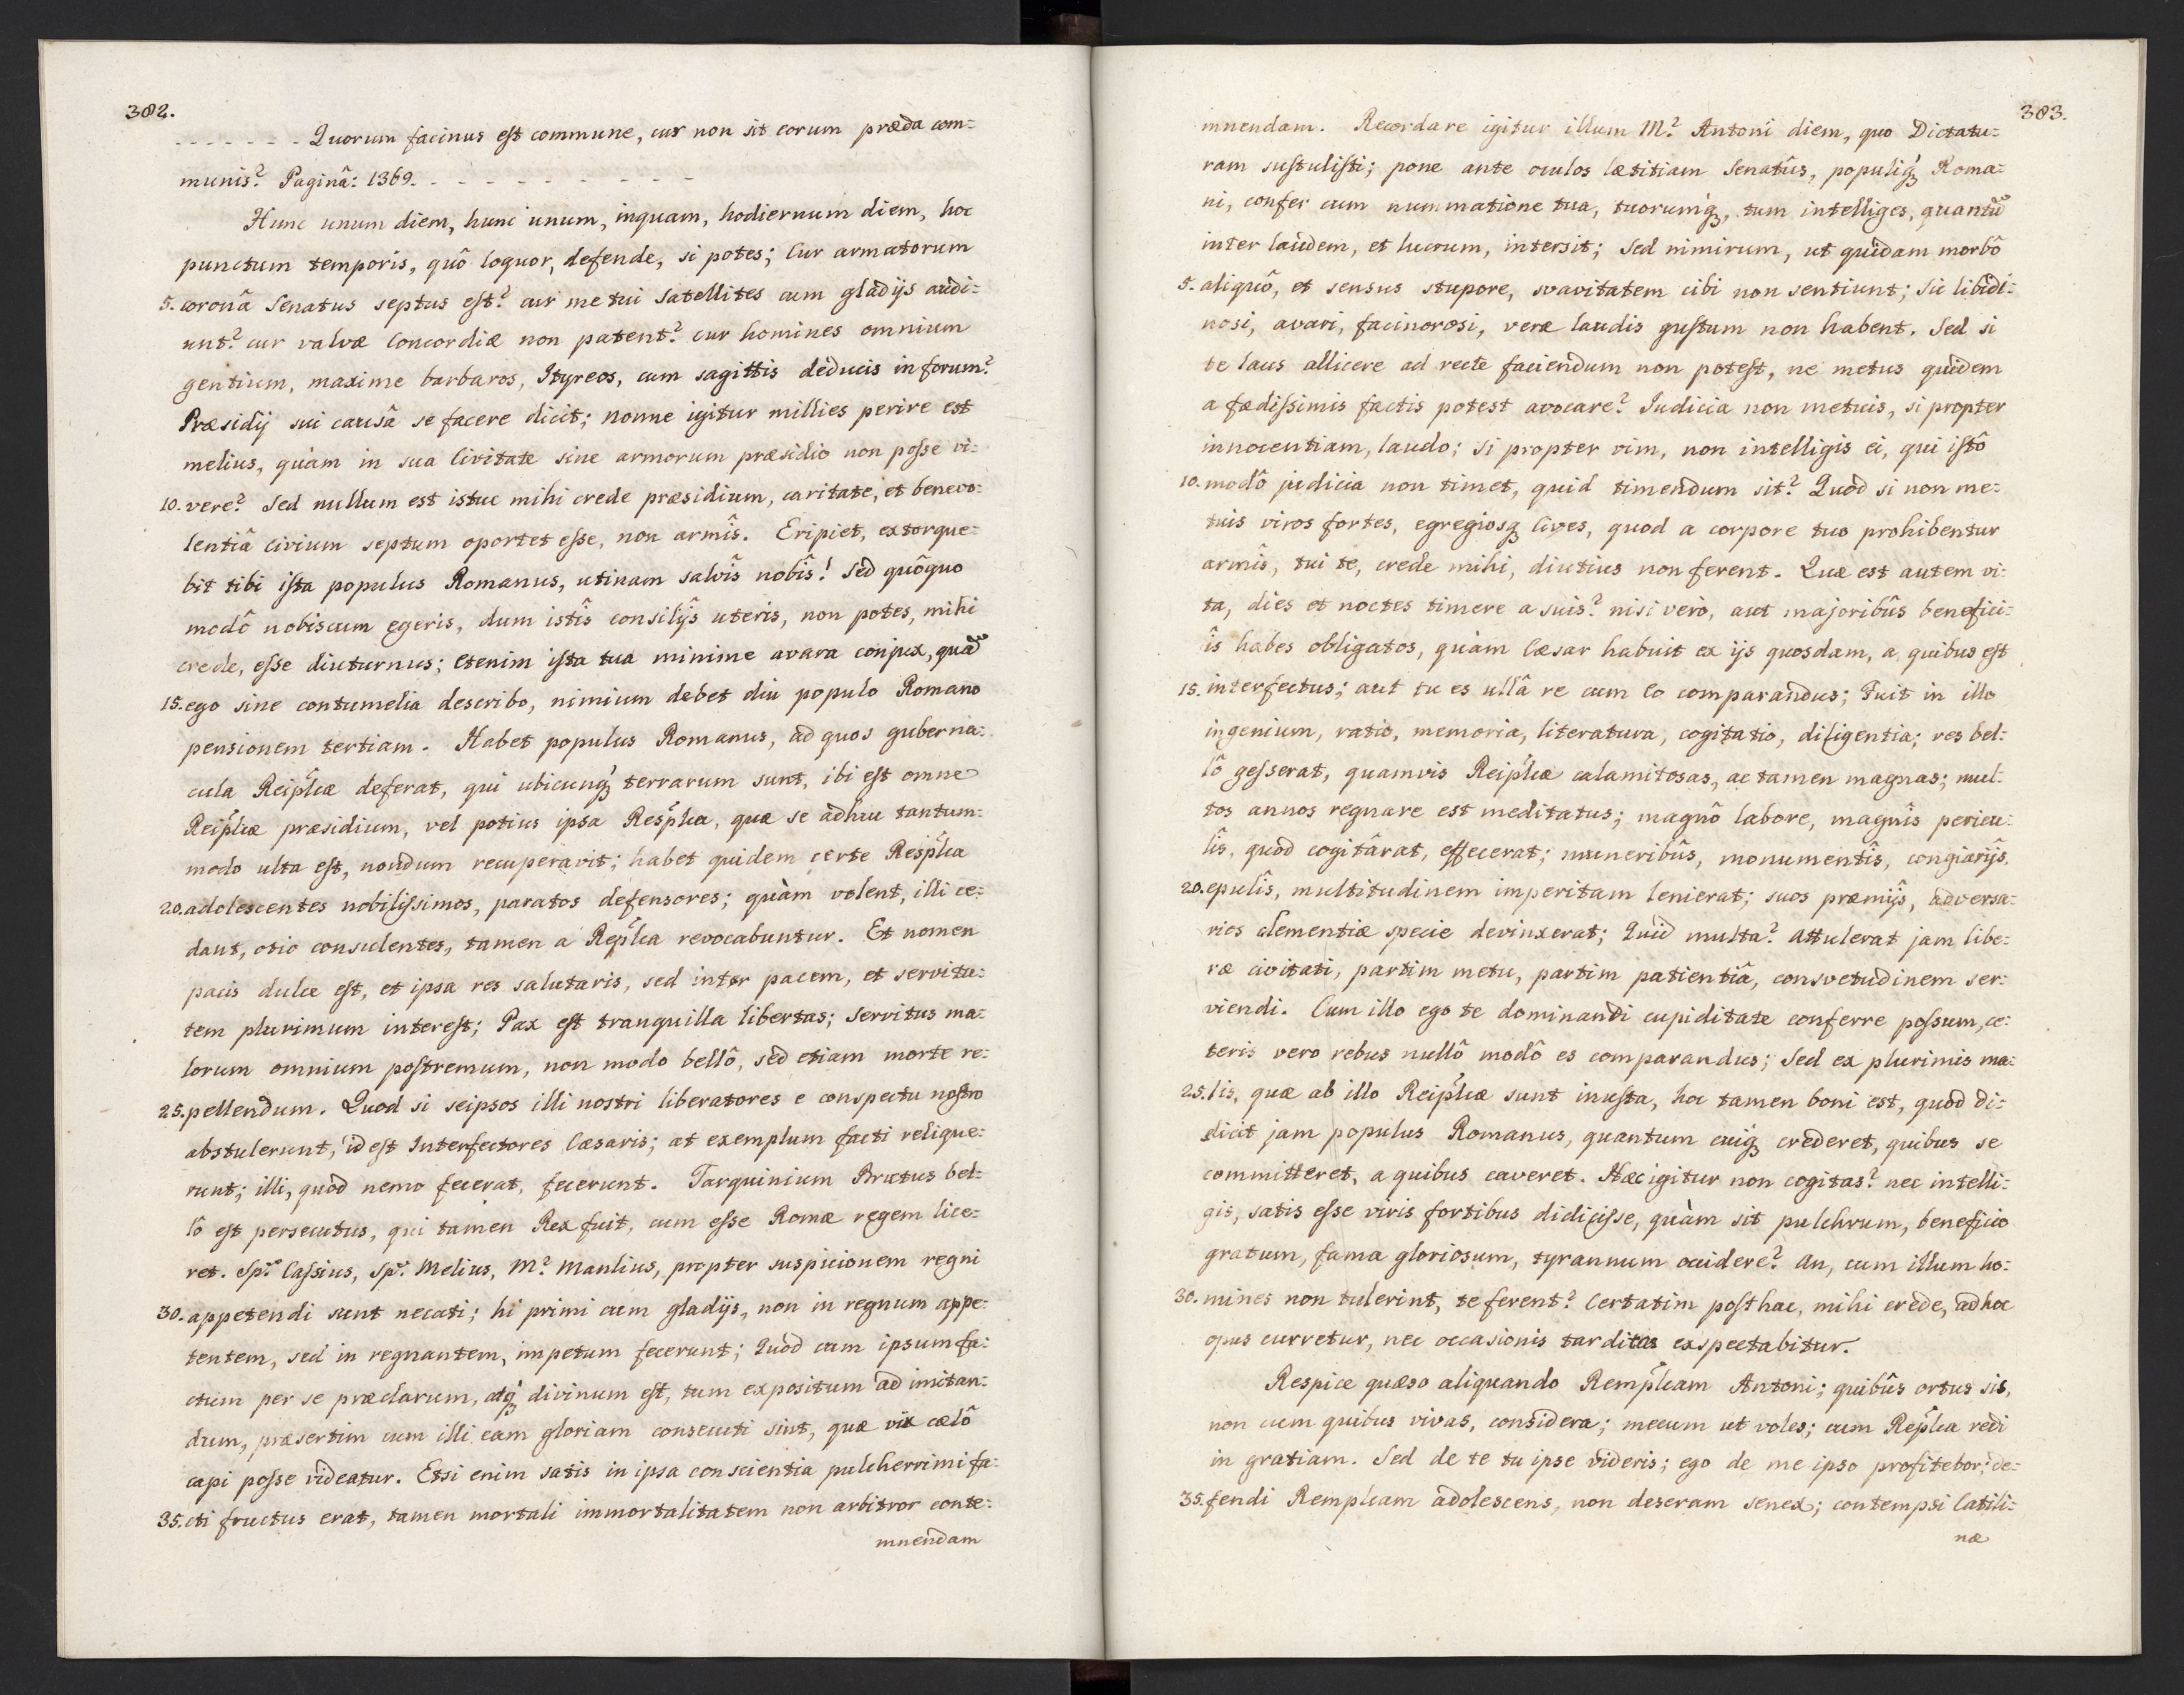 382.
- - - - - - - Quorum facinus est commune, cur non sit eorum præda com=
munis? Paginâ: 1369. - - - - - - - - - -
Hunc unum diem, hunc unum, inquam, hodiernum diem, hoc
punctum temporis, quô loquor, defende, si potes; Cur armatorum
5. coronâ Senatus septus est? cur me tui Satellites cum gladijs audi=
unt? cur valvæ Concordiæ non patent? cur homines omnium
gentium, maxime barbaros, Ityreos, cum sagittis deducis in forum?
Præsidij sui causâ se facere dicit; nonne igitur millies perire est
melius, quàm in sua Civitate sine armorum præsidio non posse vi=
10. vere? Sed nullum est istuc mihi crede præsidium, caritate, et benevo=
lentiâ Civium septum oportet esse, non armîs. Eripiet, extorque=
bit tibi ista populus Romanus, utinam salvîs nobîs! Sed quôquo
modô nobiscum egeris, dum istîs consilijs uteris, non potes, mihi
crede, esse diuturnus; Etenim ista tua minime avara conjux, quã
15. ego sine contumelia describo, nimium debet diu populo Romano
pensionem tertiam. Habet populus Romanus, ad quos guberna=
cula Reiplicæ deferat, qui ubicunq́ʒ terrarum sunt, ibi est omne
Reiplicæ præsidium, vel potius ipsa Resplica, quæ se adhuc tantum=
modo ulta est, nondum recuperavit; habet quidem certe Resplica
20. adolescentes nobilissimos, paratos defensores; quàm volent, illi ce=
dant, otio consulentes, tamen a Replica revocabuntur. Et nomen
pacis dulce est, et ipsa res salutaris, sed inter pacem, et servitu=
tem plurimum interest; Pax est tranquilla libertas; Servitus ma=
lorum omnium postremum, non modo bellô, sed etiam morte re=
25. pellendum. Quod si seipsos illi nostri liberatores e conspectu nostro
abstulerunt, id est Interfectores Cæsaris; at exemplum facti relique=
runt; illi, quod nemo fecerat, fecerunt. Tarquinium Brutus bel=
lô est persecutus, qui tamen Rex fuit, cum esse Romæ regem lice=
ret. Sp: Cassius, Sp: Melius, M? Manlius, propter suspicionem regni
30. appetendi sunt necati; hi primi cum gladijs, non in regnum appe=
tentem, sed in regnantem, impetum fecerunt; Quod cum ipsum fa=
ctum per se præclarum, atq́ʒ divinum est, tum expositum ad imitan=
dum, præsertim cum illi eam gloriam consecuti sint, quæ vix cælô
capi posse videatur. Etsi enim satis in ipsa conscientia pulcherrimi fa=
35. cti fructus erat, tamen mortali immortalitatem non arbitror conte=
mnendam
383.
mnendam. Recordare igitur illum M? Antoni diem, quo Dictatu=
ram sustulisti; pone ante oculos lætitiam Senatûs, populiq́ʒ Roma=
ni, confer cum nummatione tua, tuorumq́ʒ, tum intelliges, quantũ
inter laudem, et lucrum, intersit; Sed nimirum, ut quidam morbô
5. aliquô, et sensus stupore, svavitatem cibi non sentiunt; Sic libidi=
nosi, avari, facinorosi, veræ laudis gustum non habent. Sed si
te laus allicere ad recte faciendum non potest, ne metus quidem
a fædissimis factis potest avocare? Iudicia non metuis, si propter
innocentiam, laudo; Si propter vim, non intelligis ei, qui istô
10. modô judicia non timet, quid timendum sit? Quod si non me=
tuis viros fortes, egregiosqʒ Cives, quod a corpore tuo prohibentur
armîs, tui te, crede mihi, diutius non ferent. Quæ est autem vi=
ta, dies et noctes timere a suis? nisi verò, aut majoribûs benefici=
îs habes obligatos, quàm Cæsar habuit ex ijs quosdam, a quibus est
15. interfectus; aut tu es ullâ re cum Eo comparandus; Fuit in illo
ingenium, ratio, memoria, literatura, cogitatio, diligentia; res bel=
lô gesserat, quamvis Reiplicæ calamitosas, ac tamen magnas; mul=
tos annos regnare est meditatus; magnô labore, magnîs pericu=
lîs, quod cogitârat, effecerat; muneribûs, monumentîs, congiarijs,
20. epulîs, multitudinem imperitam lenierat; suos præmijs, adversa=
rios clementiæ specie devinxerat; Quid multa? Attulerat jam libe=
ræ civitati, partim metu, partim patientiâ, consvetudinem ser=
viendi. Cum illo ego te dominandi cupiditate conferre possum, ce=
teris vero rebus nullô modô es comparandus; Sed ex plurimis ma=
25. lis, quæ ab illo Reiplicæ sunt inusta, hoc tamen boni est, quod di=
dicit jam populus Romanus, quantum cuiqʒ crederet, quibus se
committeret, a quibus caveret. Hæc igitur non cogitas? nec intelli=
gis, satis esse viris fortibus didicisse, quàm sit pulchrum, beneficio
gratum, fama gloriosum, tyrannum occidere? An, cum illum ho=
30. mines non tulerint, te ferent? Certatim posthac, mihi crede, ad hoc
opus curretur, nec occasionis tarditas exspectabitur.
Respice quæso aliquando Remplicam Antoni; quibûs ortus sis,
non cum quibus vivas, considera; mecum ut voles; cum Replica redi
in gratiam. Sed de te tu ipse videris; ego de me ipso profitebor; de=
35. fendi Remplicam adolescens, non deseram senex; contempsi Catili=
næ